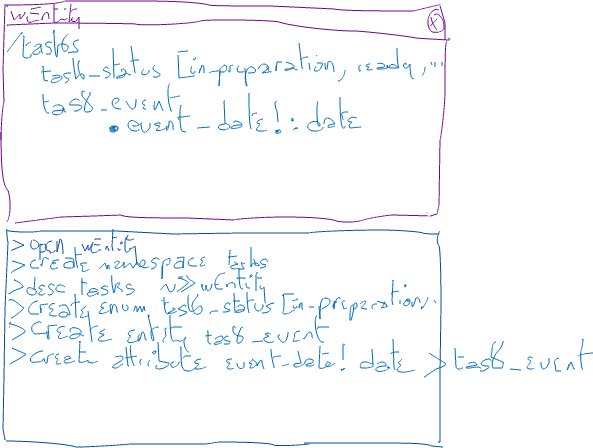 wEntity (x)
/tasks
task_status [in-preparation, ready, ...
task_event
• event_date! : date
> open wEntity
> create namespace tasks
> desc tasks >> wEntity
> create enum task_status [in-preparation, .
> Create entity task_event
> create attribute event-date! date > task_event